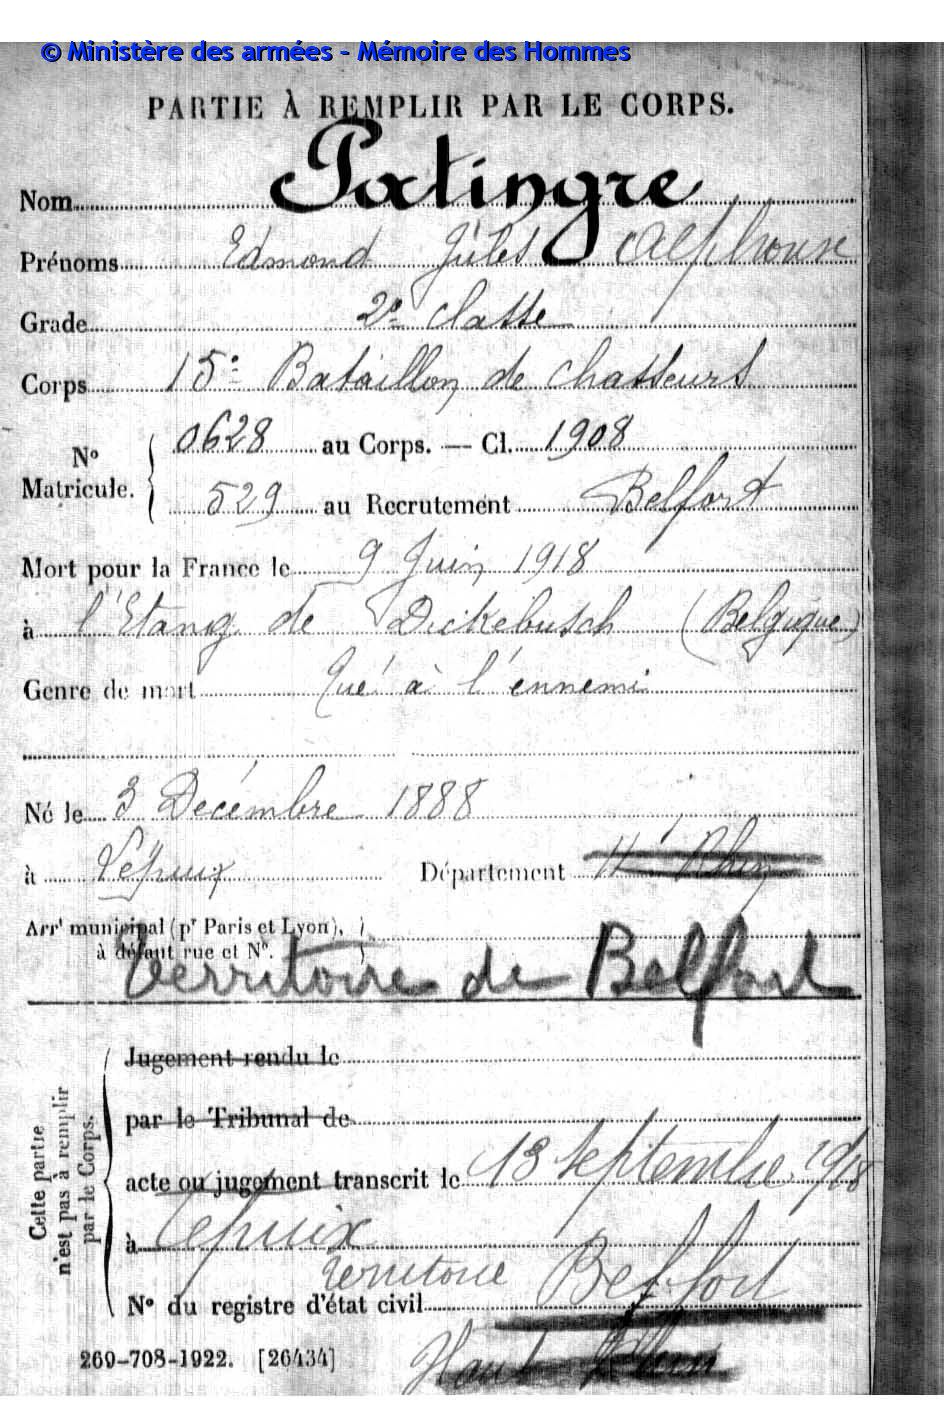 © Ministère des armées - Mémoire des Hommes
PARTIE À REMPLIR PAR LE CORPS.
Nom Patingre
Prénoms Edmond Jules Alphonse
Grade 2e classe
Corps 15e Bataillon de chasseurs
No Matricule. { 0628 au Corps. — Cl. 1908
529 au Recrutement Belfort
Mort pour la France le 9 Juin 1918
à l'Etang de Dickebusch (Belgique)
Genre de mort Tué à l'ennemi
Né le 3 Décembre 1888
à Lepuix Département Ht Rhin
Arrt municipal (pr Paris et Lyon), }
à défaut rue et No. }
Territoire de Belfort
Cette partie n'est pas à remplir par le Corps.
Jugement rendu le
par le Tribunal de
acte ou jugement transcrit le 13 Septembre 1918
à Lepuix
Territoire Belfort
No du registre d'état civil
Haut Rhin
269-708-1922. [26434]